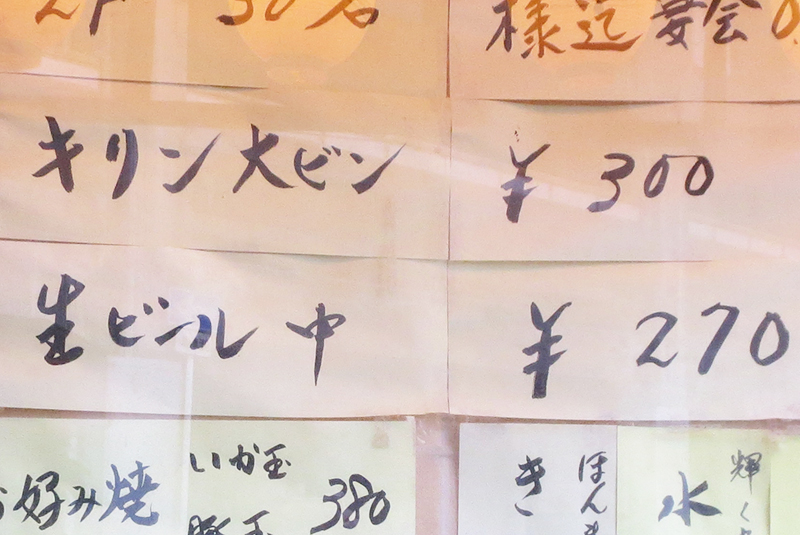 30名
様迄 宴会
キリン大ビン ¥300
生ビール 中 ¥270
お好み焼 いか玉 380
豚玉
き ほんも
水 輝く